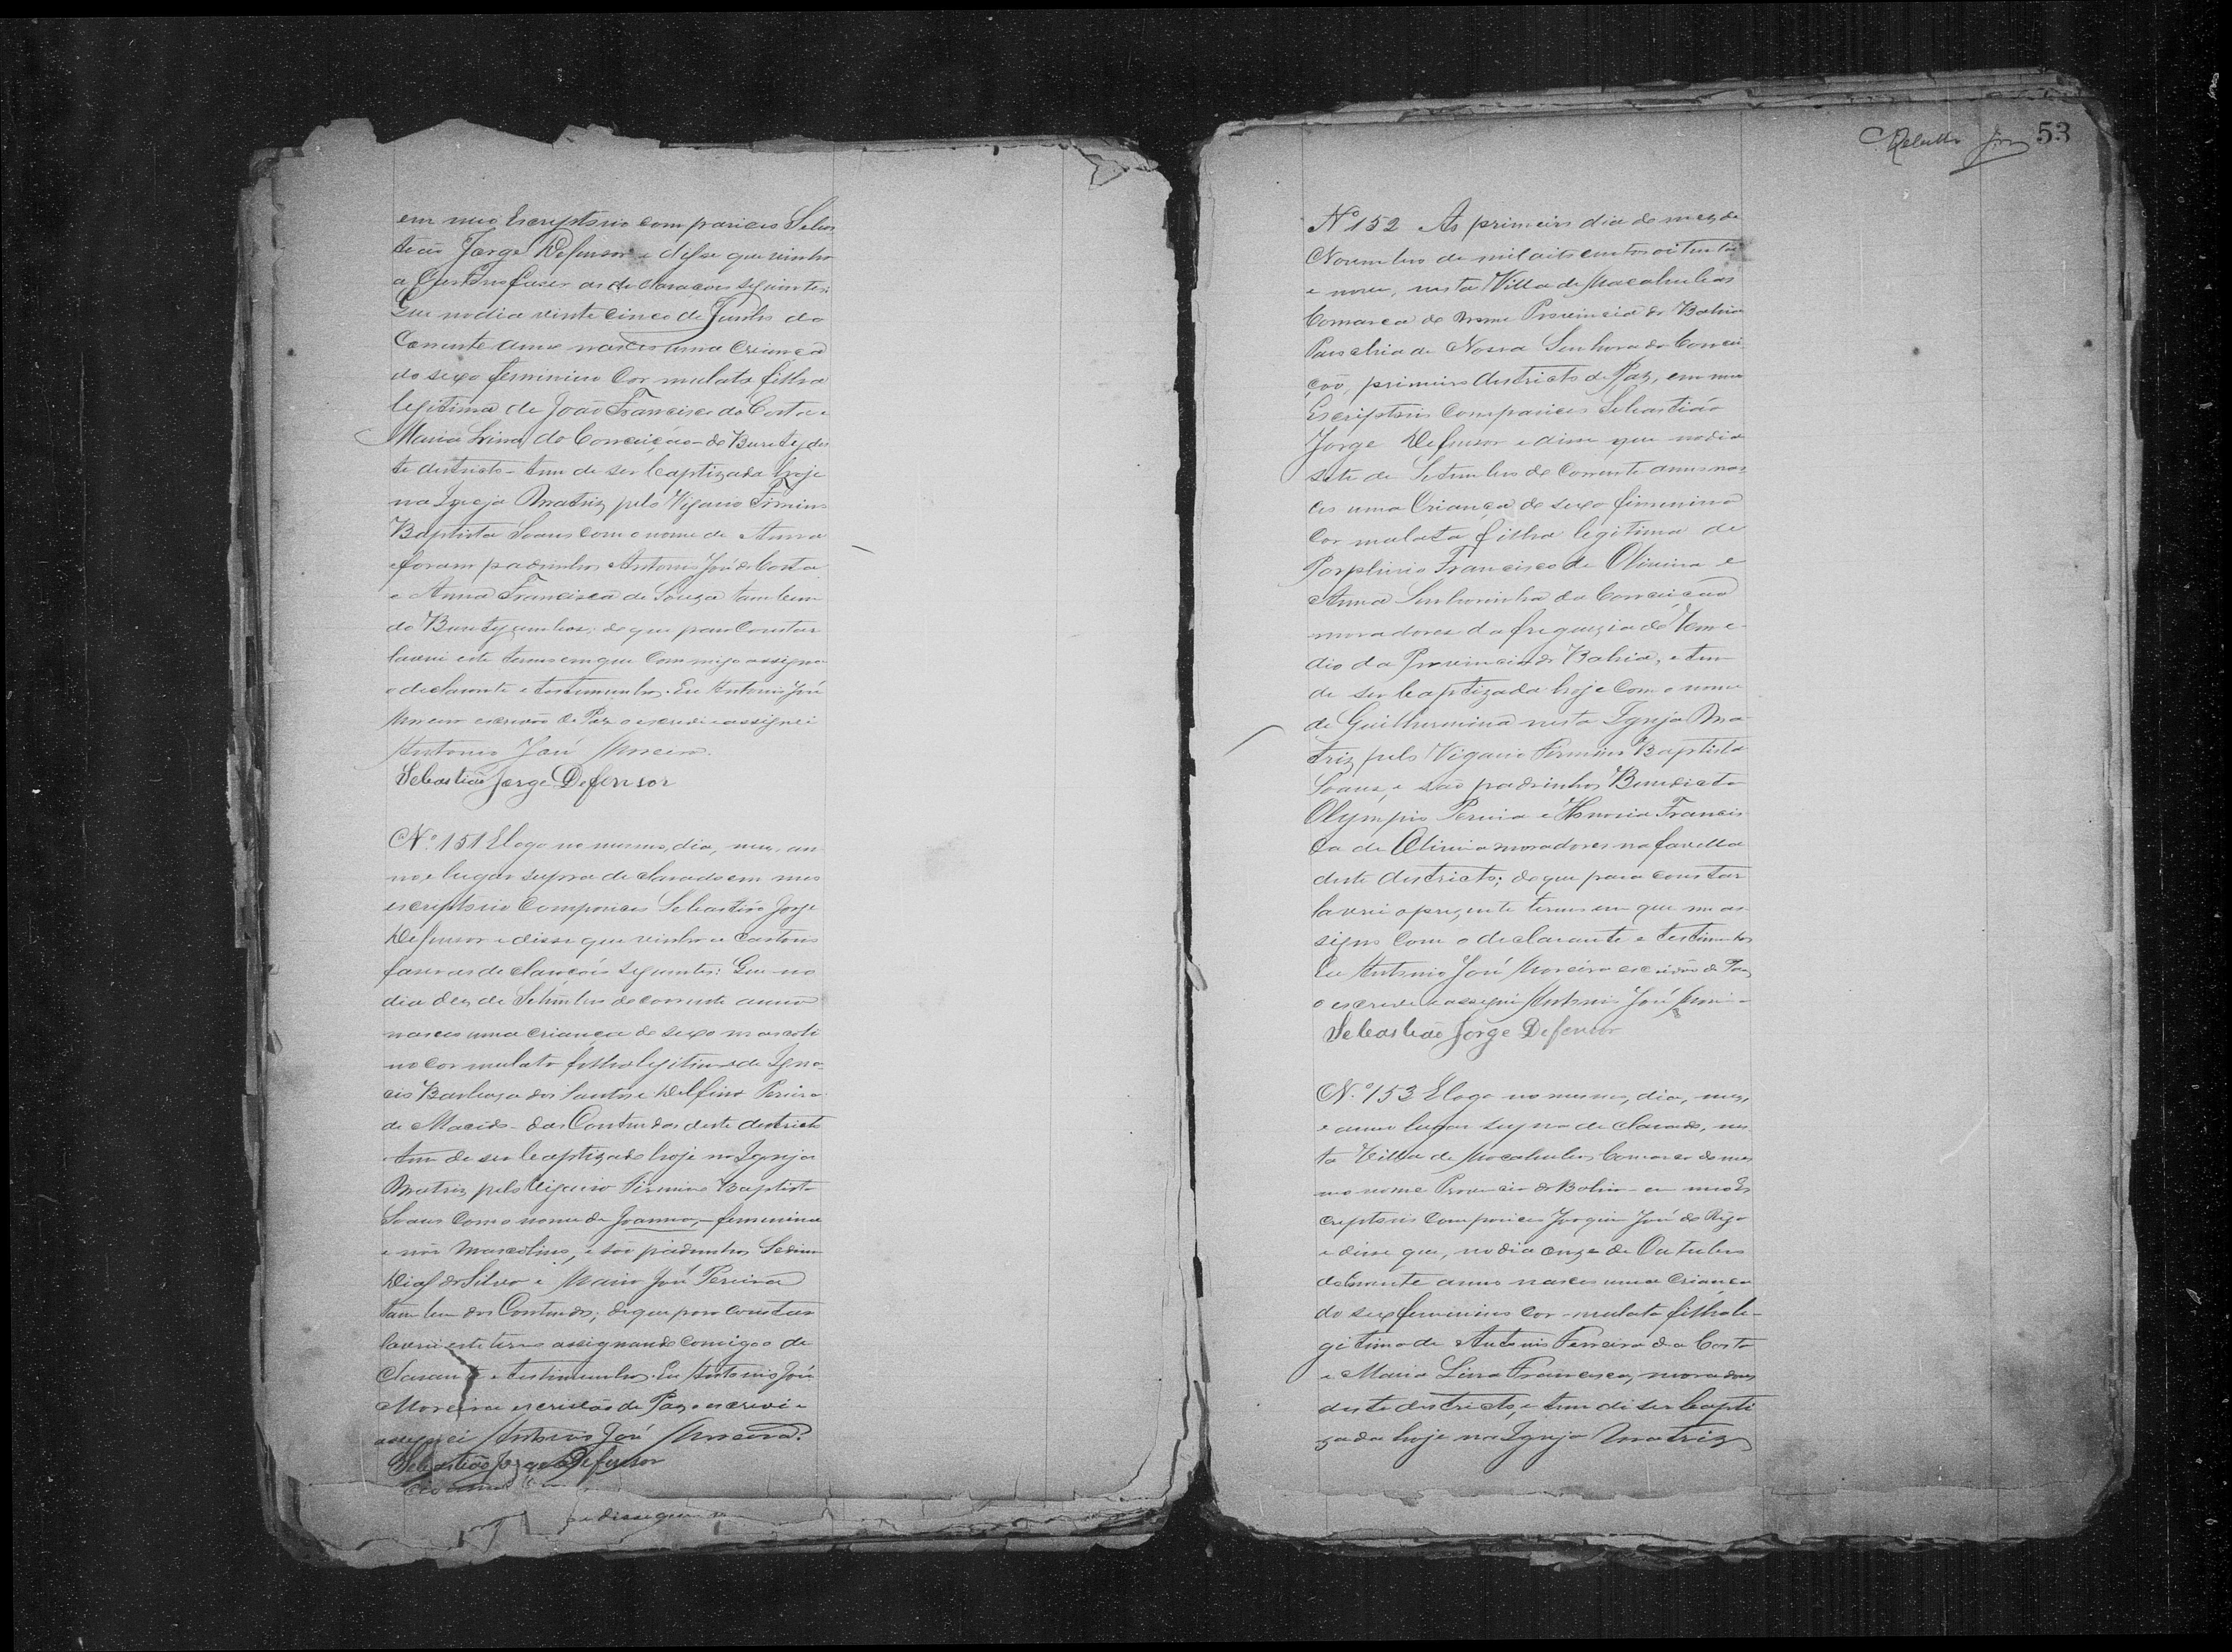 em meu Escriptorio compareceo Sebas
tião Jorge Defensor e disse que vinha
a Cartorio faser as declaracoes seguintes:
Que no dia vinte cinco de Junho do
Corrente anno nasceo uma Criança
do sexo feminino Cor mulata filha
legitima de João Francisco da Costa e
Maria da Conceição do Burity des
te districto tem de ser baptizada hoje
na Igreja Matriz pelo Vigario Firmino
Baptista Soares com o nome de Anna
e foram padrinhos Antonio José da Costa
e Anna Francisca de Souza tambem
do Burity ambos; do que para Constar
lavrei este termo em que commigo assigna
o declarante e testemunhas. Eu Antonio José
Moreira escrivão de Paz o escrevi e assignei
Antonio José Moreira.
Sebastião Jorge Defensor
Nº 151 E logo no mesmo, dia, mez, an
no, e lugar supra declarado em meo
escriptorio Compareceo Sebastião Jorge
Defensor e disse que vinha a Cartorio
faser as declarações seguintes: Que no
dia dez de Setembro do corrente anno
nasceo uma criança do sexo masculi
no cor mulata filho legitimo de Igna
cio Barboza dos Santos e Delfina Pereira
de Macedo das Contendas deste districto
tem de ser baptizado hoje na Igreja
Matriz pelo Vigario Firmino Baptista
Soares Com o nome de Joanna, feminina
e não Masculino, e são padrinhos
Dias da Silva e Maria José Pereira
tambem das Contendas; do que para Constar
lavrei este termo assignando comigo o de
clarante e testimunhas. Eu Antonio José
Moreira escrivão de Paz o escrevi e
assignei Antonio José Moreira.
Sebastião Jorge Defensor
e disse que
53
Nº 152 Ao primeiro dia do mez de
Novembro de mil oito centos oitenta
e nove, nesta Villa de Macahubas
Comarca do nome Provincia da Bahia
Parochia de Nossa Senhora da Concei
ção, primeiro districto de Paz, em meu
Escriptorio Compareceo Sebastião
Jorge Defensor e disse que no dia
sete de Setembro do Corrente anno nas
ceo uma Criança do sexo femenino
Cor mulata filha legitima de
Porphirio Francisco de Oliveira e
Anna Senhorinha da Conceição
moradores da freguezia do
da Provincia da Bahia, e tem
de ser baptizada hoje com o nome
de Guilhermina nesta Igreja Ma
triz pelo Vigario Firmino Baptista
Soares, e são padrinhos Benedicto
Olympio Pereira e Honoria Francis
ca de Oliveira moradores na favella
deste districto; do que para constar
lavrei o prezente termo em que me as
signo Com o declarante e testimunhas
Eu Antonio José Moreira escrivão de Paz
o escrevi e assignei Antonio José
Sebastião Jorge Defensor
Nº 153 E logo no mesmo, dia, mez,
e anno lugar supra declarado, nes
ta Villa de Macahubas Comarca do mes
mo nome Provincia da Bahia em meo Es
criptorio Compareceo Joaquim José do Rego
e disse que, no dia onze de Outubro
do Corrente anno nasceo uma Criança
do sexo feminino cor mulata filha le
gitima de Antonio Ferreira da Costa
e Maria Lina Francisca, moradores
deste districto, e tem de ser bapti
zada hoje na Igreja Matriz